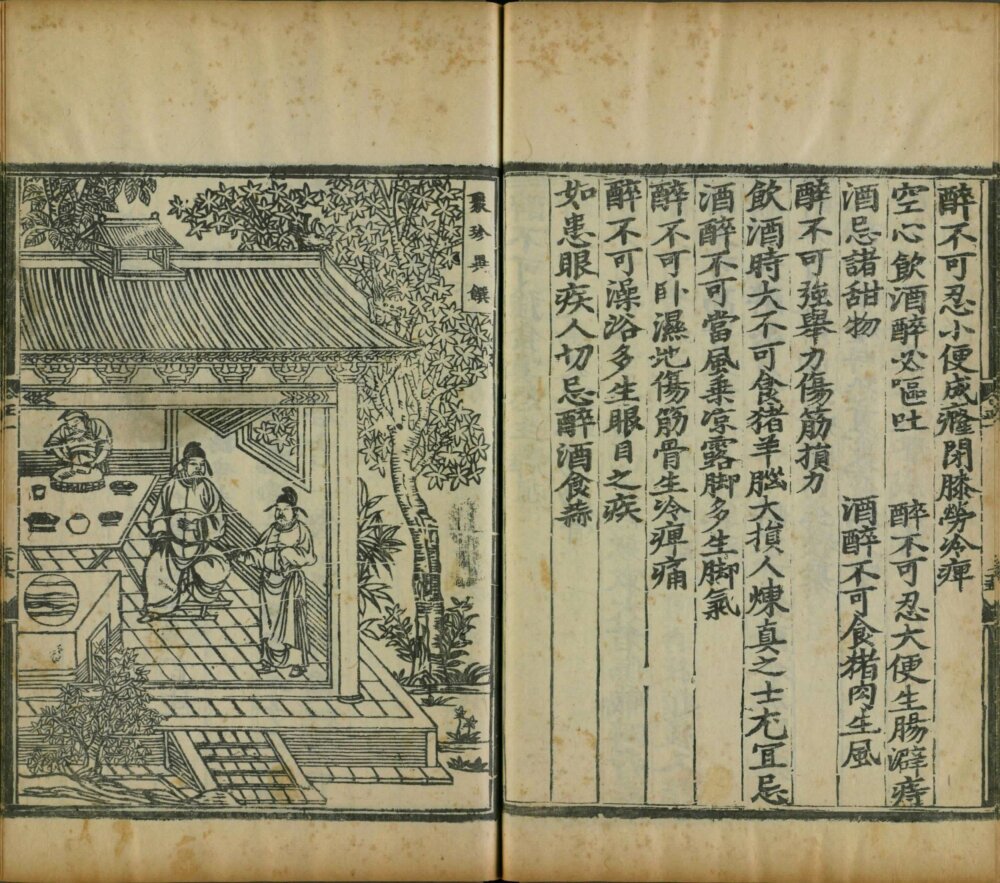 醉不可忍小便成癃閉膝勞冷痺
空心飲酒醉必嘔吐　醉不可忍大便生腸澼痔
酒忌諸甜物　酒醉不可食猪肉生風
醉不可強舉力傷筋損力
飲酒時大不可食猪羊腦大損人煉真之士尤宜忌
酒醉不可當風乗凉露脚多生脚氣
醉不可卧濕地傷筋骨生冷痺痛
醉不可澡浴多生眼目之疾
如患眼疾人切忌醉酒食蒜
聚珍異饌